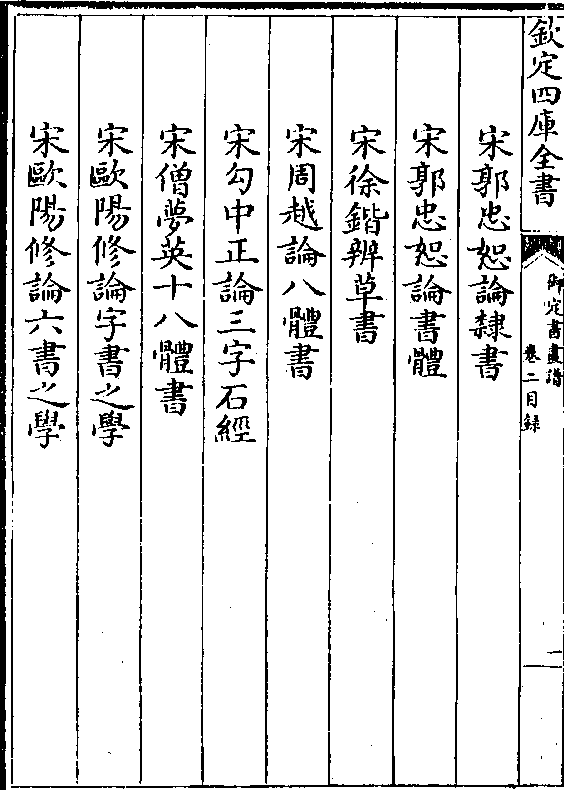 欽定四庫全書
御定書畫譜
卷二目録
二
宋郭忠恕論隸書
宋郭忠恕論書體
宋徐鍇辨草書
宋周越論八體書
宋勾中正論三字石經
宋僧夢英十八體書
宋歐陽修論字書之學
宋歐陽修論六書之學